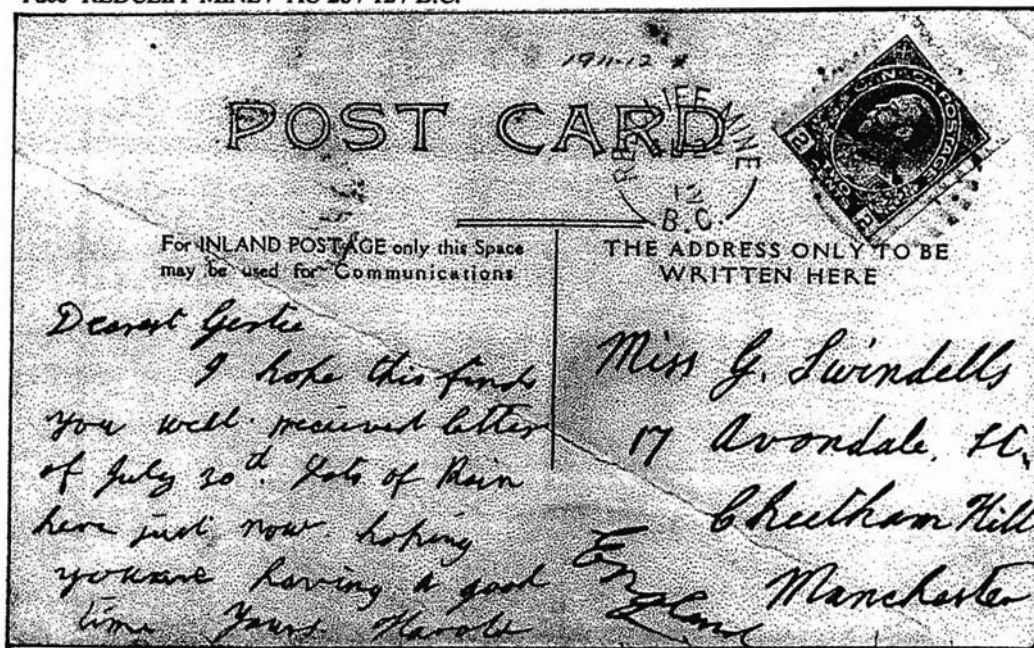 REDCLIFF MINE / AU 26 / 12 / B.C.
1911-12
POST CARD
REDCLIFFE MINE
12
B.C.
CANADA POSTAGE
2 TWO CENTS 2
For INLAND POSTAGE only this Space
may be used for Communications
THE ADDRESS ONLY TO BE
WRITTEN HERE
Dearest Gertie
I hope this finds
you well. recieved letter
of July 30th. Lots of Rain
here just now. hoping
you are having a good
time Yours Harold
Miss G. Swindells
17 Avondale. St.
Cheetham Hill
Manchester
England